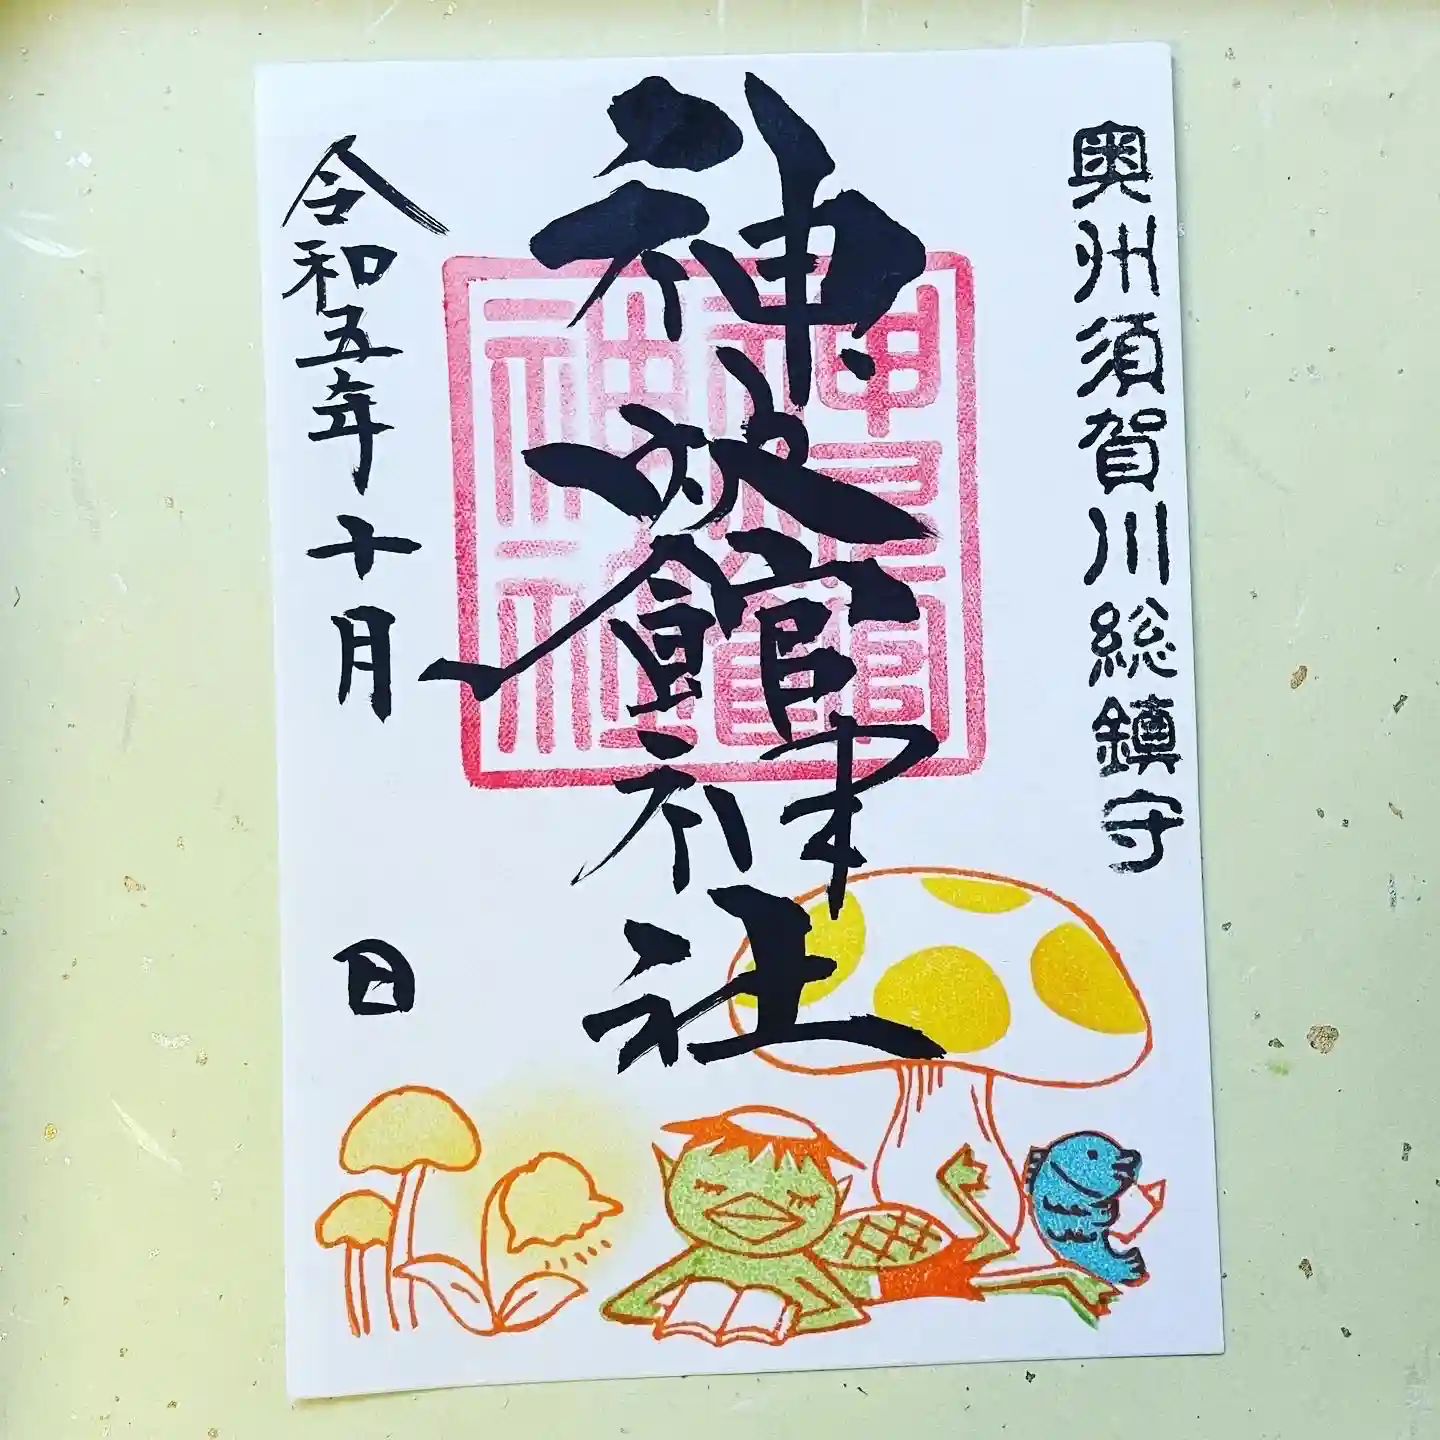 奥州須賀川総鎮守
神炊館神社
令和五年十月
日